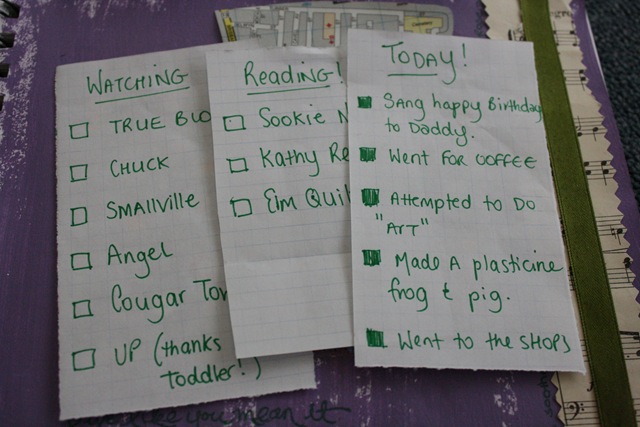 WATCHING
TRUE BLO
CHUCK
SMALLVILLE
Angel
Cougar Tow
UP (thanks
Toddler!)
Reading!
Sookie
Kathy Re
Eim Quil
TODAY!
SANG happy Birthday
to Daddy.
Went FOR COFFEE
Attempted to Do
"ART"
Made A plasticine
frog & pig.
Went to the SHOPS
like you mean it